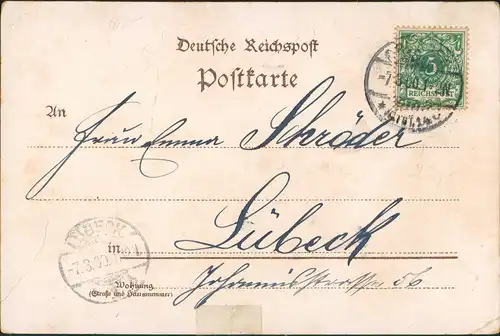 Deutsche Reichspost
Postkarte
5
REICHSPOST
-7.3.00.
An
Frau Emma Schröder
Lübeck
in
LÜBECK
-7.3.00.
Johannisstrasse 56
Wohnung
(Straße und Hausnummer)